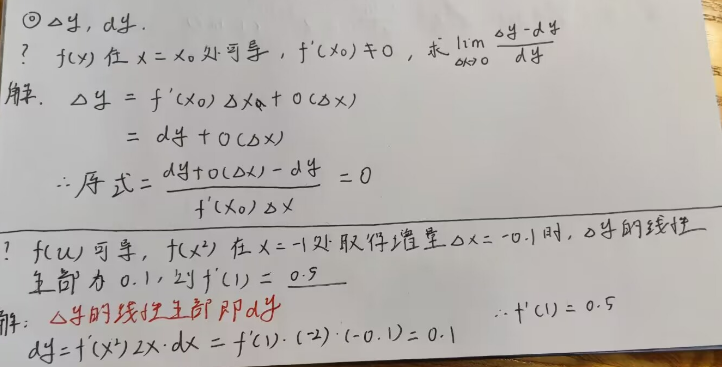 ◎ Δy, dy.
? f(x) 在 x = x₀ 处可导, f'(x₀) ≠ 0, 求 lim_{Δx→0} (Δy-dy)/dy
解. Δy = f'(x₀) Δx + o(Δx)
= dy + o(Δx)
∴ 原式 = (dy+o(Δx)-dy)/(f'(x₀) Δx) = 0
? f(u) 可导, f(x²) 在 x = -1 处取得增量 Δx = -0.1 时, Δy 的线性
主部为 0.1, 则 f'(1) = 0.5
解: Δy的线性主部即dy
dy = f'(x²) 2x·dx = f'(1)·(-2)·(-0.1) = 0.1 ∴ f'(1) = 0.5